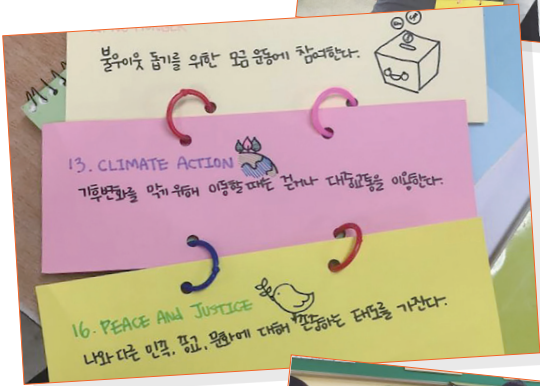 불우이웃 돕기를 위한 모금 운동에 참여한다.
13. CLIMATE ACTION
기후변화를 막기 위해 이동할 때는 걷거나 대중교통을 이용한다.
16. PEACE AND JUSTICE
나와 다른 민족, 종교, 문화에 대해 존중하는 태도를 가진다.